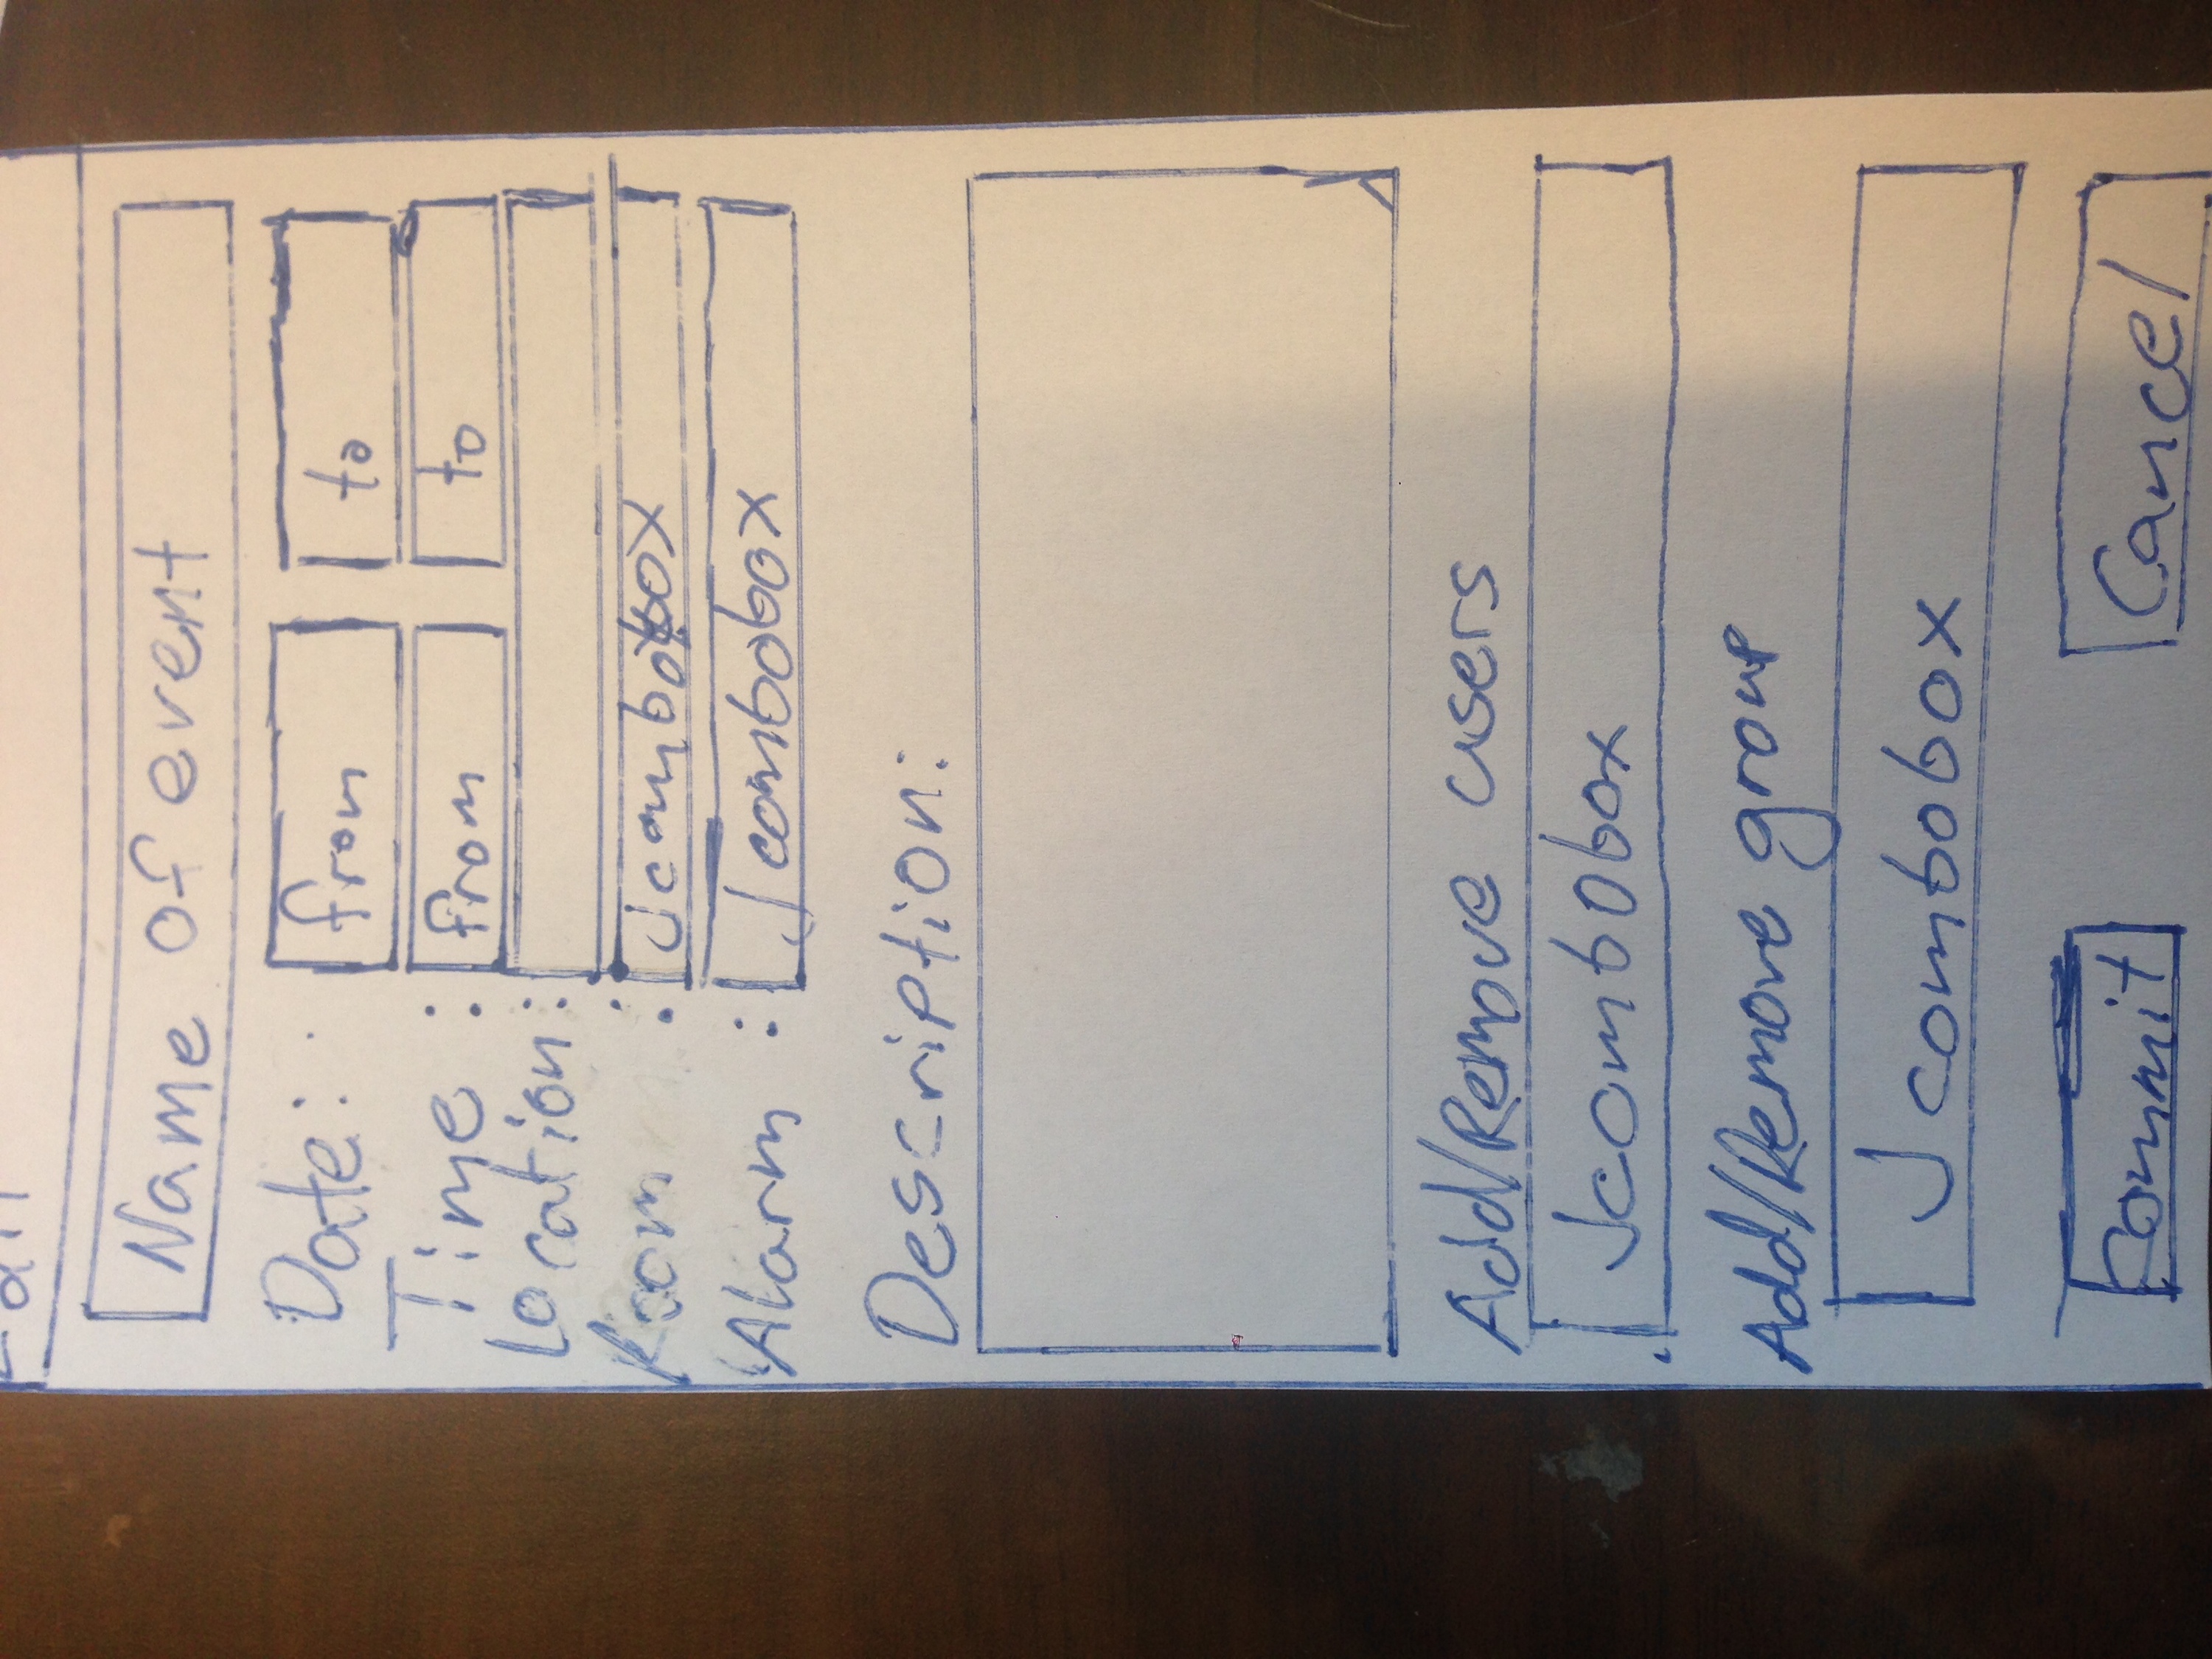 Edit
Name of event
Date: from to
Time : from to
Location:
Room : Jcombobox
Alarm : Jcombobox
Description:
Add/Remove users
Jcombobox
Add/Remove group
Jcombobox
Commit Cancel